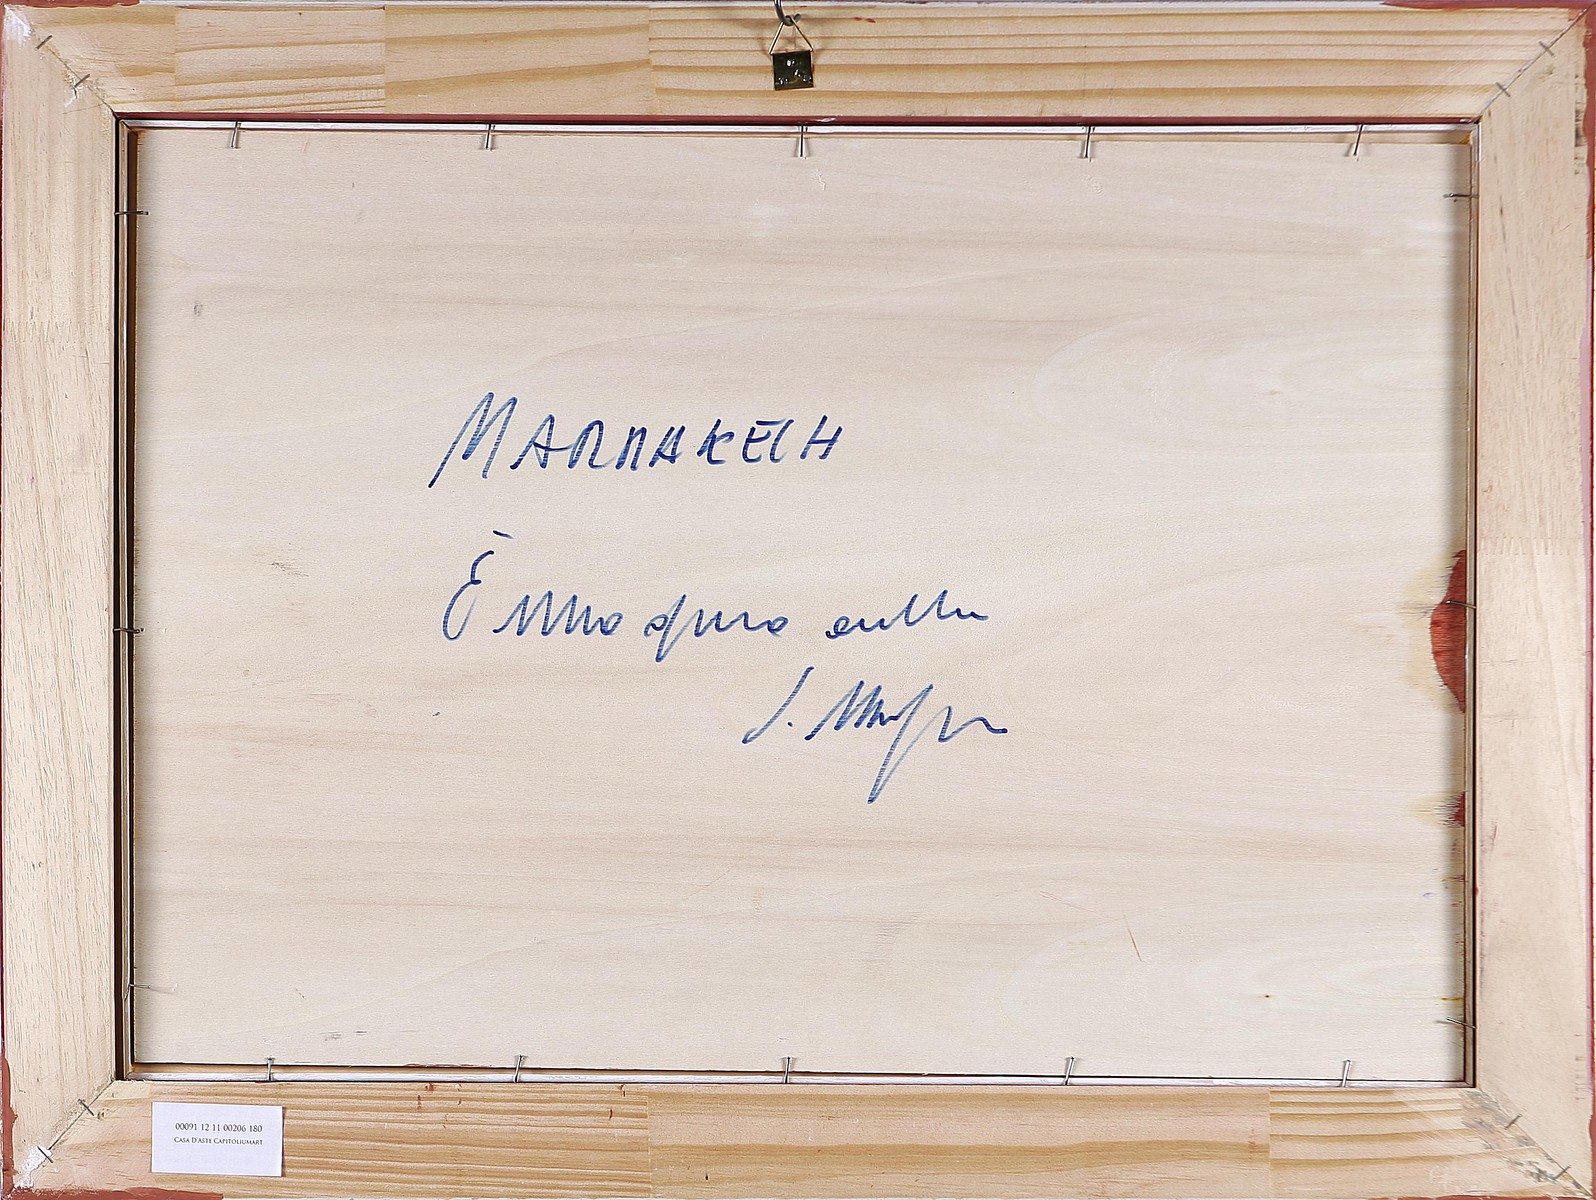 MARRAKECH
È una opera autentica
00091 12 11 00206 180
CASA D'ASTE CAPITOLIUMART